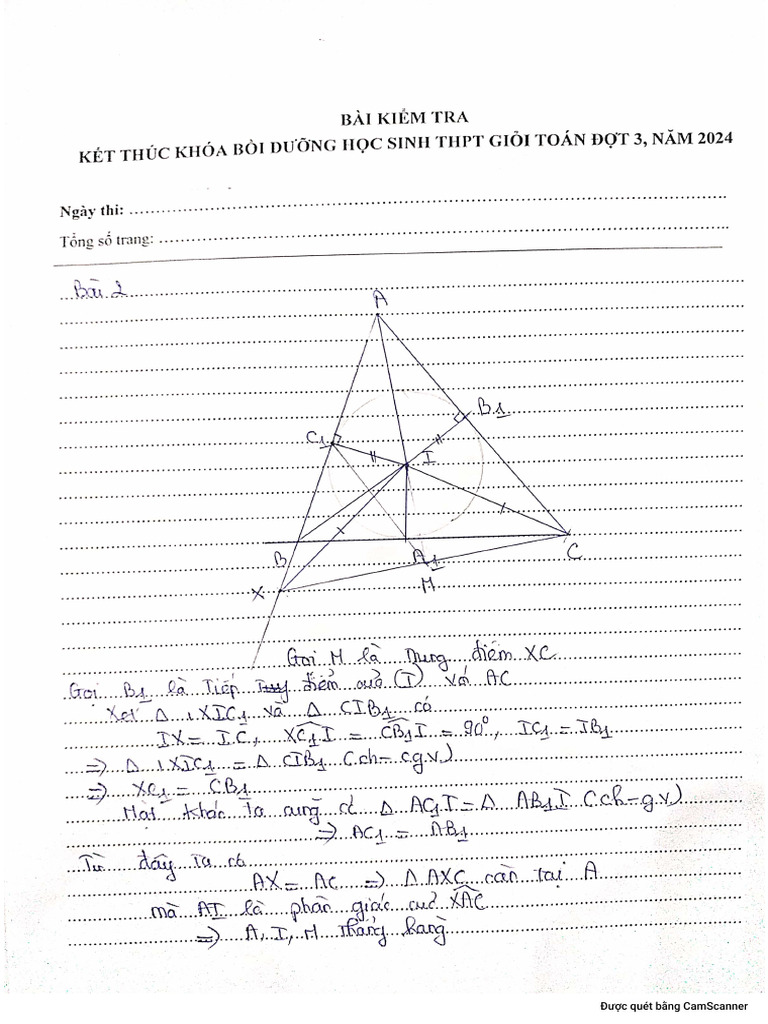 BÀI KIỂM TRA
KẾT THÚC KHÓA BỒI DƯỠNG HỌC SINH THPT GIỎI TOÁN ĐỢT 3, NĂM 2024
Ngày thi:
Tổng số trang:
Bài 2
A
B1
C1
I
B
A1
C
X
M
Gọi M là trung điểm XC
Gọi B1 là tiếp điểm của (I) với AC
Xét Δ XIC1 và Δ CIB1 có
IX = IC, XC1I = CB1I = 90°, IC1 = IB1
=> Δ XIC1 = Δ CIB1 (ch-cgv)
=> XC1 = CB1
Mặt khác ta cũng có Δ AC1I = Δ AB1I (ch-gv)
=> AC1 = AB1
Từ đây ta có
AX = AC => Δ AXC cân tại A
mà AI là phân giác của XAC
=> A, I, M thẳng hàng
Được quét bằng CamScanner